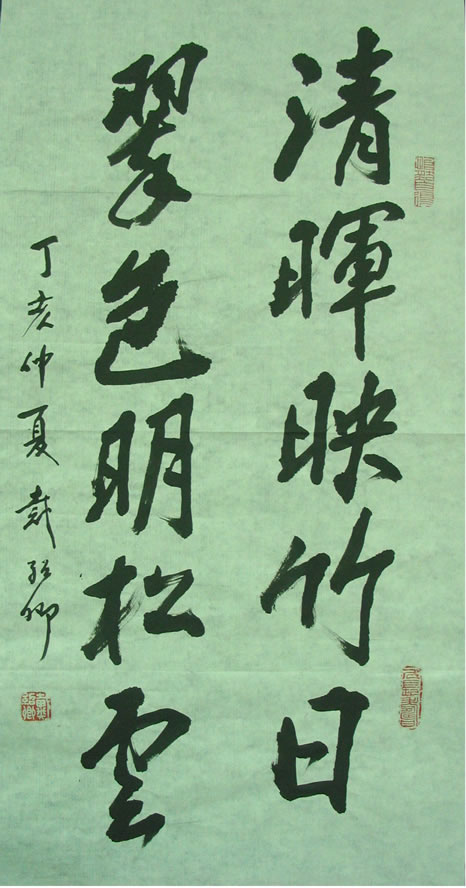 清暉映竹日
翠色明松雲
丁亥仲夏戴